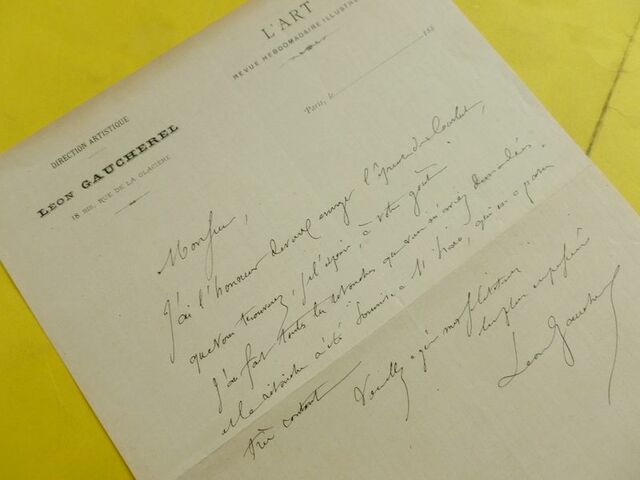 L'ART
REVUE HEBDOMADAIRE ILLUSTRÉE
Paris, le 188
DIRECTION ARTISTIQUE
LÉON GAUCHEREL
18 BIS, RUE DE LA GLACIÈRE
Monsieur,
J'ai l'honneur de vous envoyer l'épreuve
que vous trouverez, je l'espère, à votre goût.
J'ai fait toutes les retouches que vous m'aviez demandées
et la retouche a été soumise à M. qui en a paru
très content Veuillez agréer mes salutations
les plus empressées
Léon Gaucherel